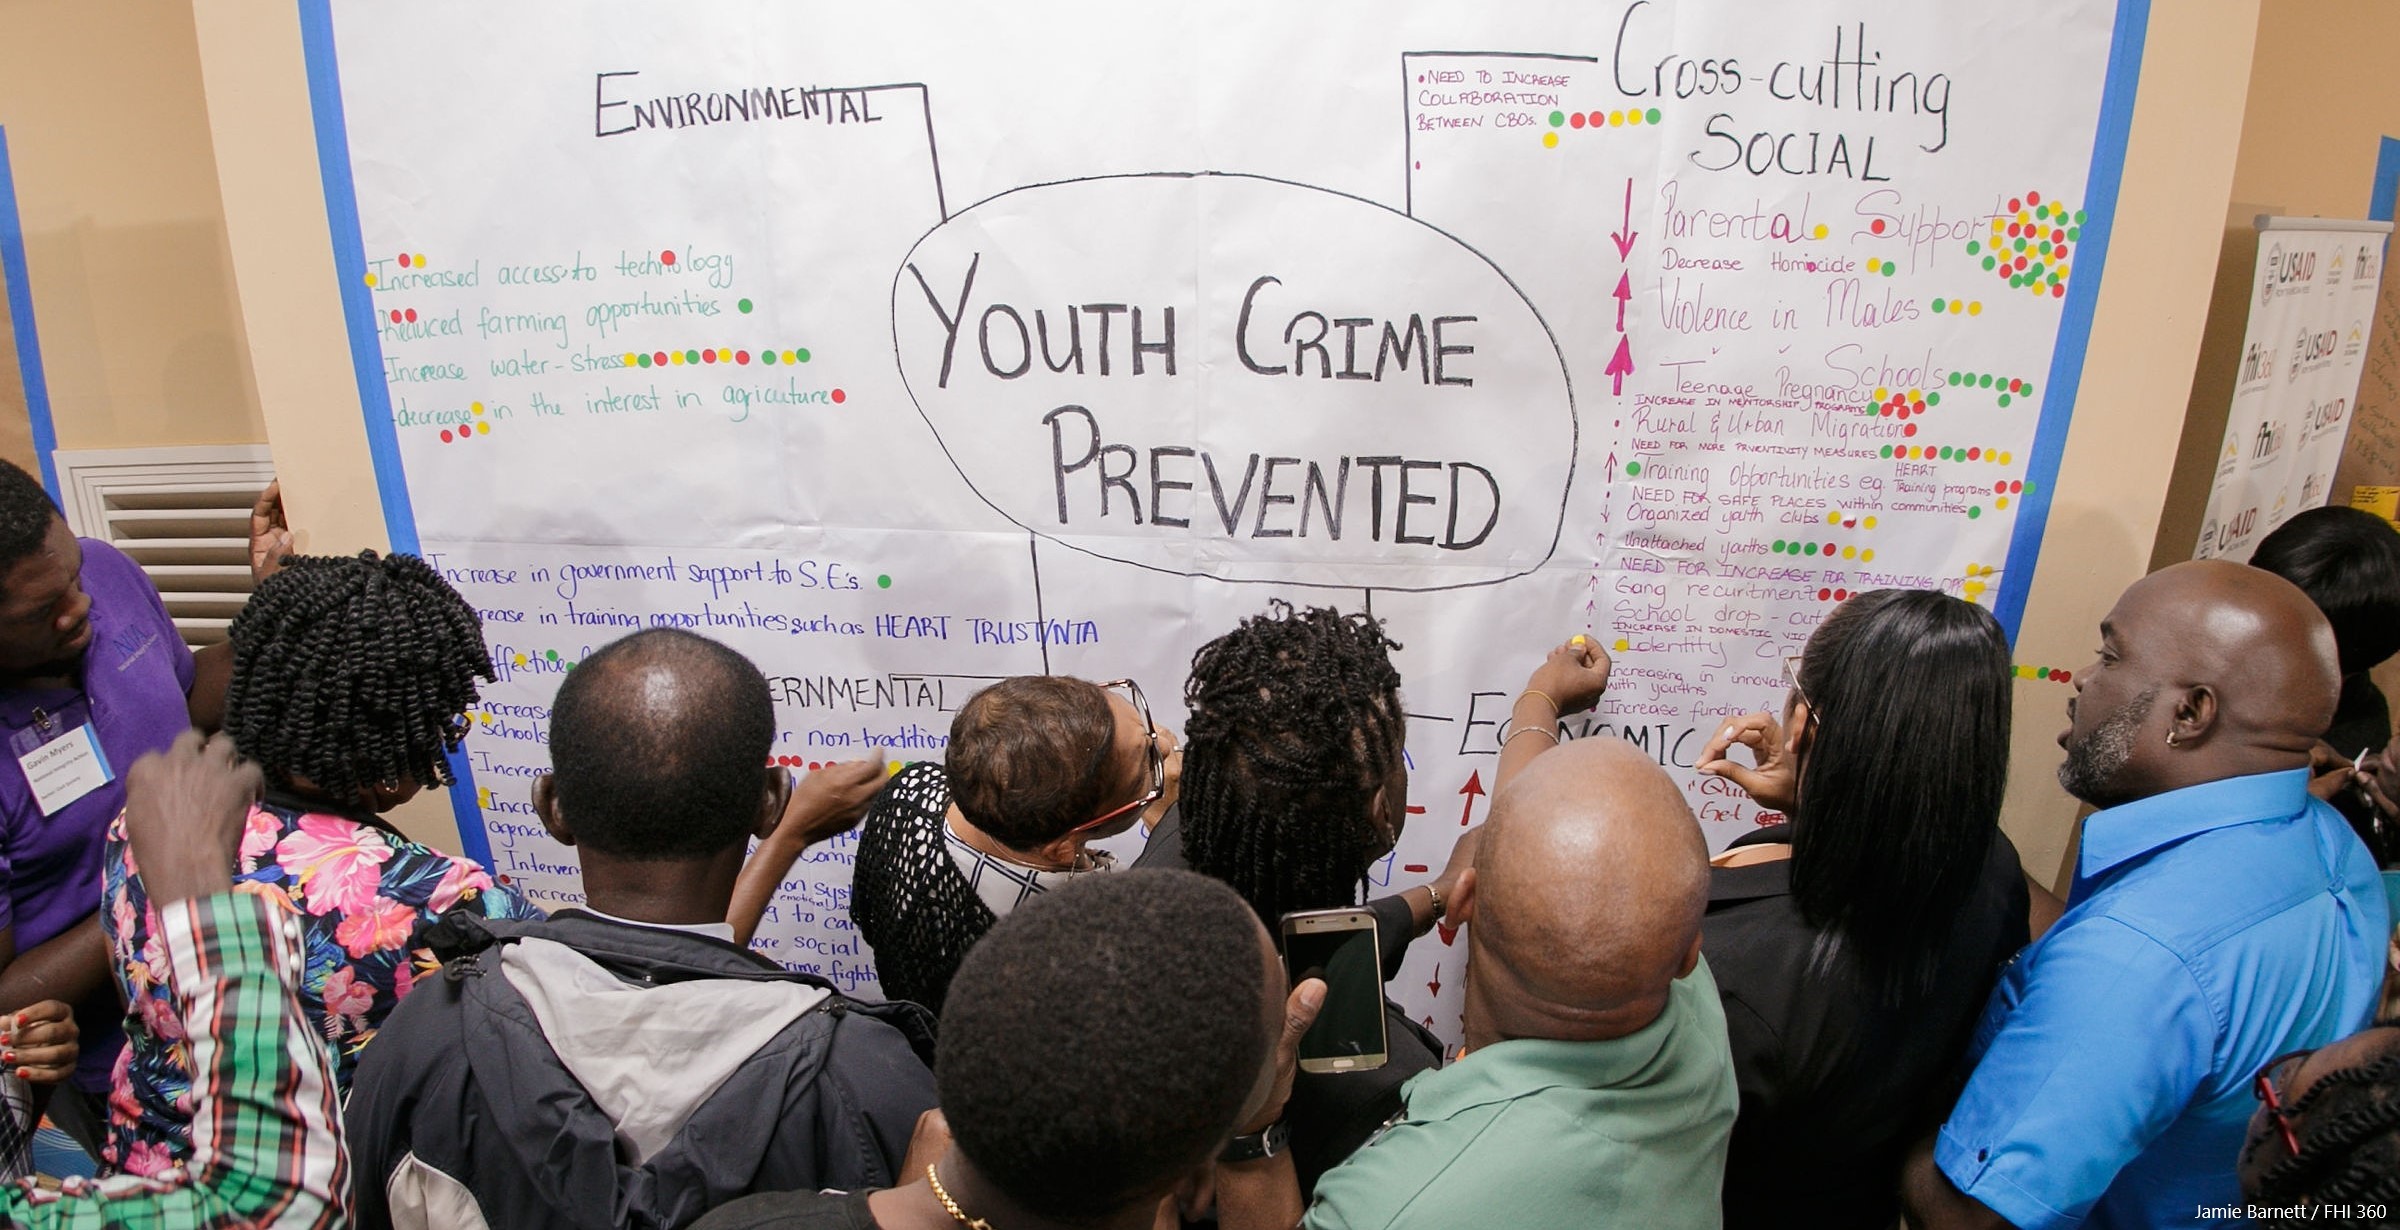 ENVIRONMENTAL
Increased access to technology
-Reduced farming opportunities
-Increase water-stress
-decrease in the interest in agriculture
YOUTH CRIME
PREVENTED
Cross-cutting
SOCIAL
• NEED TO INCREASE
COLLABORATION
BETWEEN CBOs.
Parental Support
Decrease Homicide
Violence in Males
Schools
Teenage Pregnancy
INCREASE IN MENTORSHIP PROGRAMS
Rural & Urban Migration
NEED FOR MORE PRVENTIVITY MEASURES
Training Opportunities eg. HEART
Training programs
NEED FOR SAFE PLACES within communities
Organized youth clubs
Unattached youths
NEED FOR INCREASE FOR TRAINING OPP
Gang recuritment
School drop-out
INCREASE IN DOMESTIC VIO
Identity Cri
Increasing in innovat
with youths
Increase funding
Increase in government support to S.E's.
rease in training opportunities such as HEART TRUST/NTA
ffective
ERNMENTAL
Increase
schools
r non-tradition
-Increas
Incr
agenci
-Interven
Increas
comm
on syst
emotional su
g to car
ore social
crime fighti
ECONOMIC
Get
NIA
Gavin Myers
National Integrity Action
USAID
fhi360
USAID
fhi360
USAID
fhi360
USAID
Jamie Barnett / FHI 360